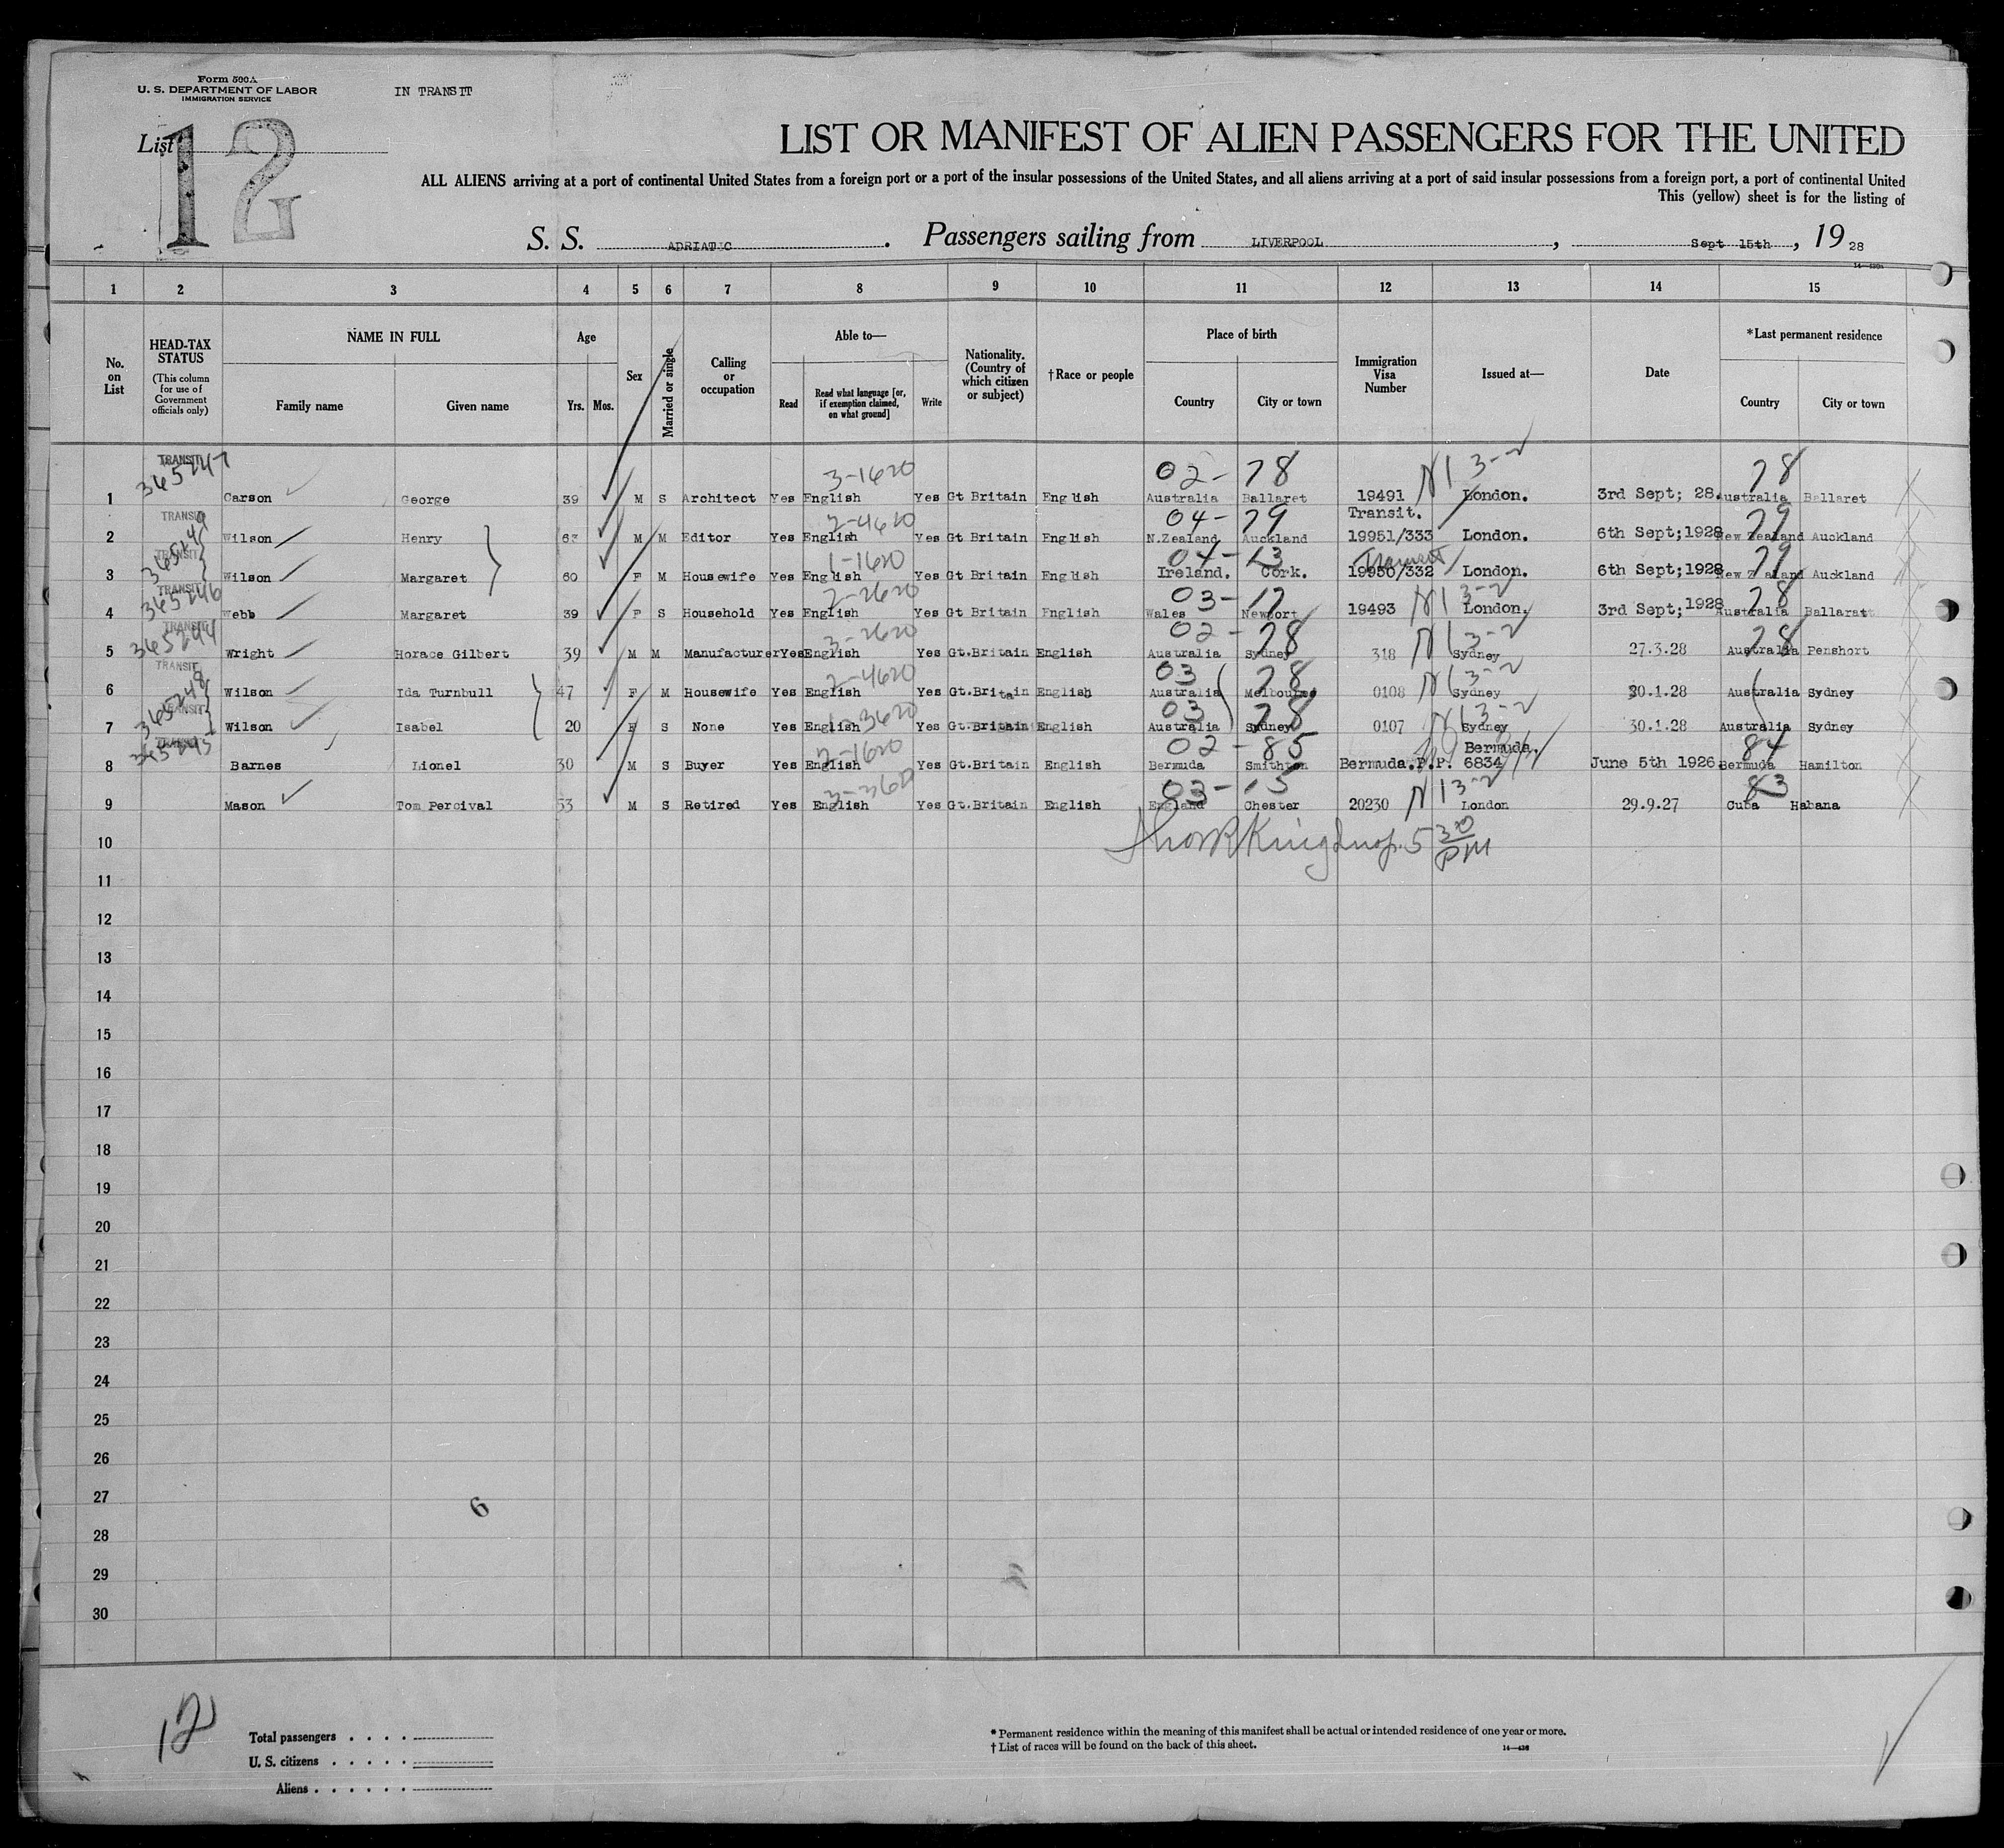 Form 500A
U. S. DEPARTMENT OF LABOR
IMMIGRATION SERVICE
IN TRANSIT
List 12
LIST OR MANIFEST OF ALIEN PASSENGERS FOR THE UNITED
ALL ALIENS arriving at a port of continental United States from a foreign port or a port of the insular possessions of the United States, and all aliens arriving at a port of said insular possessions from a foreign port, a port of continental United
This (yellow) sheet is for the listing of
S. S. ADRIATIC. Passengers sailing from LIVERPOOL, Sept 15th, 1928
1 2 3 4 5 6 7 8 9 10 11 12 13 14 15
No. on List
HEAD-TAX STATUS
(This column for use of Government officials only)
NAME IN FULL
Family name Given name
Age
Yrs. Mos.
Sex
Married or single
Calling or occupation
Able to—
Read Read what language [or, if exemption claimed, on what ground] Write
Nationality. (Country of which citizen or subject)
†Race or people
Place of birth
Country City or town
Immigration Visa Number
Issued at—
Date
*Last permanent residence
Country City or town
TRANSIT 365247 3-1620 02-78 N13-2 78
1 Carson George 39 M S Architect Yes English Yes Gt Britain English Australia Ballaret 19491 London. 3rd Sept; 28. Australia Ballaret
TRANSIT 2-4620 04-79 Transit. 79
2 Wilson Henry M M Editor Yes English Yes Gt Britain English N.Zealand Auckland 19951/333 London. 6th Sept;1928 New Zealand Auckland
TRANSIT 365249 1-1620 04-13 Transit 79
3 Wilson Margaret 60 F M Housewife Yes English Yes Gt Britain English Ireland. Cork. 19950/332 London. 6th Sept;1928 New Zealand Auckland
TRANSIT 365246 2-2620 03-17 N13-2 78
4 Webb Margaret 39 F S Household Yes English Yes Gt Britain English Wales Newport 19493 London. 3rd Sept;1928 Australia Ballarat
TRANSIT 365244 3-2620 02-78 N13-2 78
5 Wright Horace Gilbert 39 M M Manufacturer Yes English Yes Gt.Britain English Australia Sydney 318 Sydney 27.3.28 Australia Penshort
TRANSIT 2-4620 03 78 N13-2
6 Wilson Ida Turnbull 47 F M Housewife Yes English Yes Gt.Britain English Australia Melbourne 0108 Sydney 30.1.28 Australia Sydney
TRANSIT 365248 1-3620 03 78 N13-2
7 Wilson Isabel 20 F S None Yes English Yes Gt.Britain English Australia Sydney 0107 Sydney 30.1.28 Australia Sydney
TRANSIT 365245 2-1620 02-85 Bermuda. 84
8 Barnes Lionel 30 M S Buyer Yes English Yes Gt.Britain English Bermuda Smithton Bermuda.P.P. 6834 June 5th 1926 Bermuda Hamilton
3-3620 03-15 N13-2 83
9 Mason Tom Percival 53 M S Retired Yes English Yes Gt.Britain English England Chester 20230 London 29.9.27 Cuba Habana
10 King Insp. 5 30 PM
11
12
13
14
15
16
17
18
19
20
21
22
23
24
25
26
27
6
28
29
30
12
Total passengers . . . .
U. S. citizens . . . . .
Aliens . . . . . .
* Permanent residence within the meaning of this manifest shall be actual or intended residence of one year or more.
† List of races will be found on the back of this sheet.